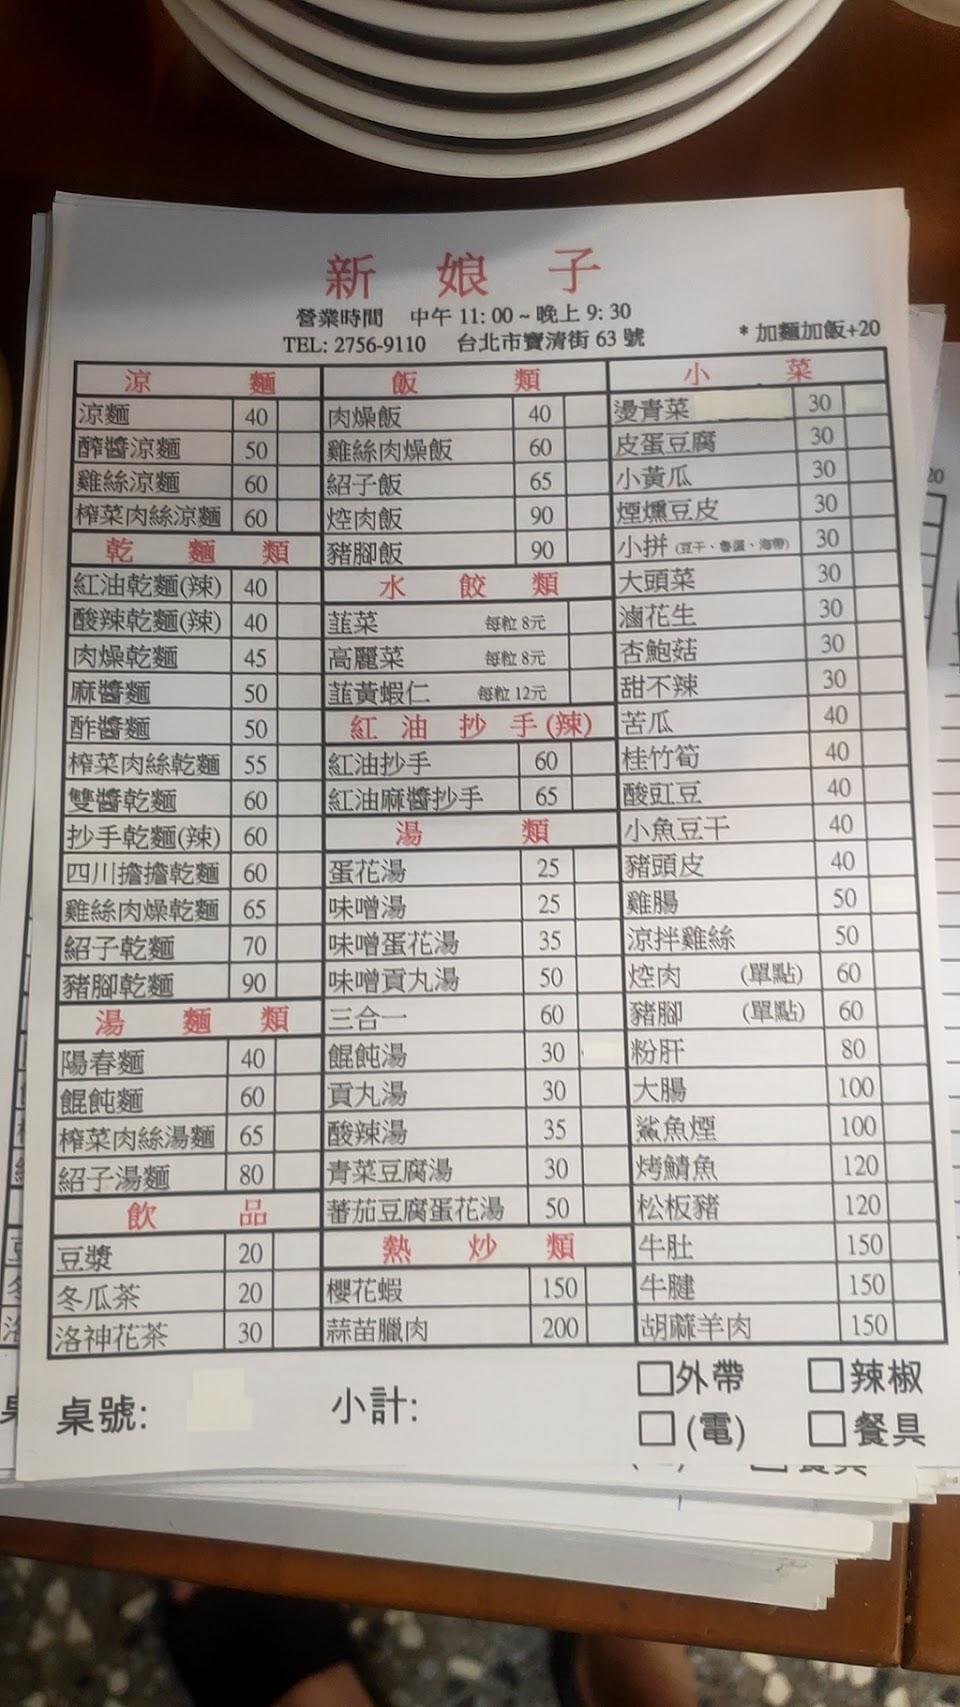 新娘子
營業時間 中午 11: 00 ~ 晚上 9: 30
TEL: 2756-9110 台北市寶清街 63 號
* 加麵加飯+20
涼麵
涼麵 40
醡醬涼麵 50
雞絲涼麵 60
榨菜肉絲涼麵 60
乾麵類
紅油乾麵(辣) 40
酸辣乾麵(辣) 40
肉燥乾麵 45
麻醬麵 50
酢醬麵 50
榨菜肉絲乾麵 55
雙醬乾麵 60
抄手乾麵(辣) 60
四川擔擔乾麵 60
雞絲肉燥乾麵 65
紹子乾麵 70
豬腳乾麵 90
湯麵類
陽春麵 40
餛飩麵 60
榨菜肉絲湯麵 65
紹子湯麵 80
飲品
豆漿 20
冬瓜茶 20
洛神花茶 30
飯類
肉燥飯 40
雞絲肉燥飯 60
紹子飯 65
焢肉飯 90
豬腳飯 90
水餃類
韮菜 每粒 8元
高麗菜 每粒 8元
韮黃蝦仁 每粒 12元
紅油抄手(辣)
紅油抄手 60
紅油麻醬抄手 65
湯類
蛋花湯 25
味噌湯 25
味噌蛋花湯 35
味噌貢丸湯 50
三合一 60
餛飩湯 30
貢丸湯 30
酸辣湯 35
青菜豆腐湯 30
蕃茄豆腐蛋花湯 50
熱炒類
櫻花蝦 150
蒜苗臘肉 200
小菜
燙青菜 30
皮蛋豆腐 30
小黃瓜 30
煙燻豆皮 30
小拼 (豆干、魯蛋、海帶) 30
大頭菜 30
滷花生 30
杏鮑菇 30
甜不辣 30
苦瓜 40
桂竹筍 40
酸豇豆 40
小魚豆干 40
豬頭皮 40
雞腸 50
涼拌雞絲 50
焢肉 (單點) 60
豬腳 (單點) 60
粉肝 80
大腸 100
鯊魚煙 100
烤鯖魚 120
松板豬 120
牛肚 150
牛腱 150
胡蔴羊肉 150
桌號: 小計: 外帶 辣椒
(電) 餐具